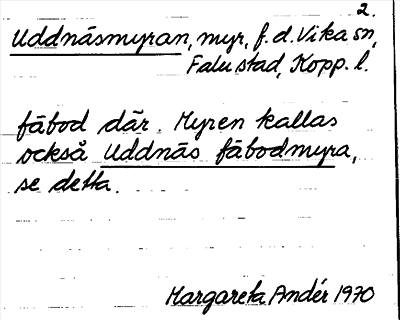 2.
Uddnäsmyran, myr, f.d. Vika sn,
Falu stad, Kopp. l.
fäbod där. Myren kallas
också Uddnäs fäbodmyra,
se detta.
Margareta Andér 1970